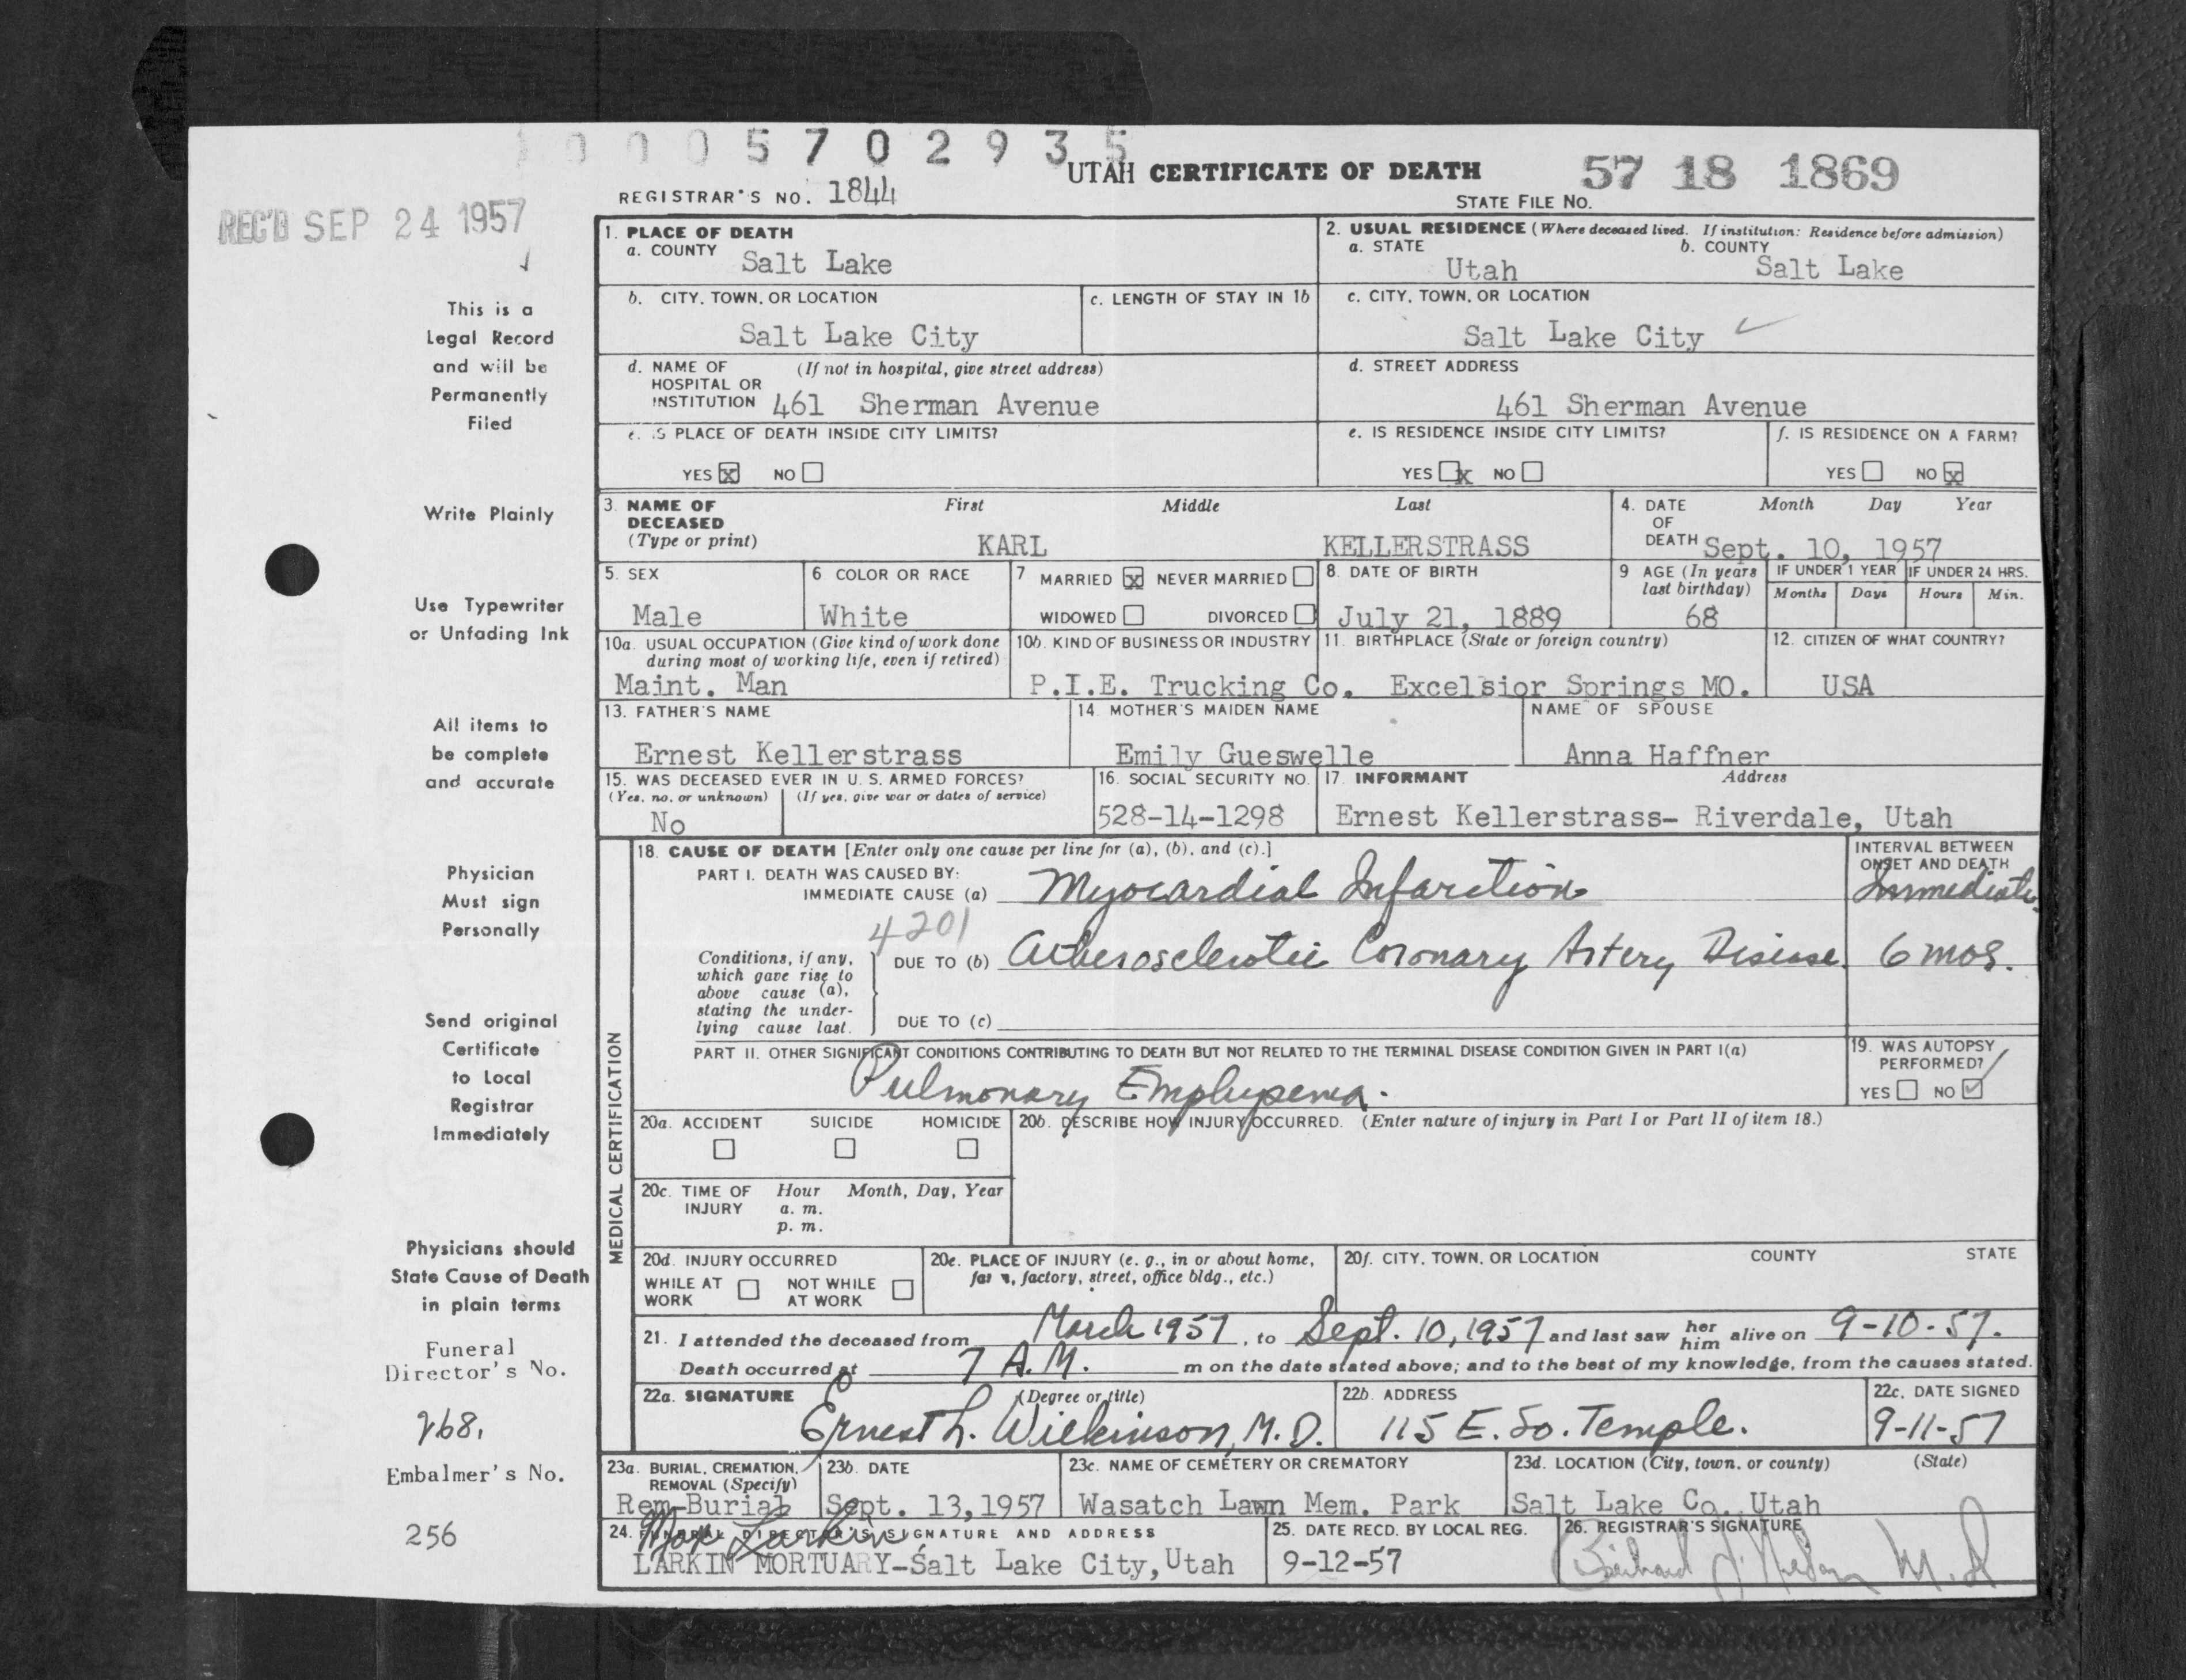 1 0 0 0 5 7 0 2 9 3 5
UTAH CERTIFICATE OF DEATH
57 18 1869
REGISTRAR'S NO. 1844
STATE FILE NO.
REC'D SEP 24 1957
This is a
Legal Record
and will be
Permanently
Filed
Write Plainly
Use Typewriter
or Unfading Ink
All items to
be complete
and accurate
Physician
Must sign
Personally
Send original
Certificate
to Local
Registrar
Immediately
Physicians should
State Cause of Death
in plain terms
Funeral
Director's No.
268.
Embalmer's No.
256
1. PLACE OF DEATH
a. COUNTY Salt Lake
2. USUAL RESIDENCE (Where deceased lived. If institution: Residence before admission)
a. STATE Utah b. COUNTY Salt Lake
b. CITY, TOWN, OR LOCATION Salt Lake City
c. LENGTH OF STAY IN 1b
c. CITY, TOWN, OR LOCATION Salt Lake City
d. NAME OF HOSPITAL OR INSTITUTION (If not in hospital, give street address) 461 Sherman Avenue
d. STREET ADDRESS 461 Sherman Avenue
e. IS PLACE OF DEATH INSIDE CITY LIMITS?
YES X NO
e. IS RESIDENCE INSIDE CITY LIMITS?
YES X NO
f. IS RESIDENCE ON A FARM?
YES NO X
3. NAME OF DECEASED (Type or print) First Middle Last
KARL KELLERSTRASS
4. DATE OF DEATH Month Day Year
Sept. 10, 1957
5. SEX Male
6 COLOR OR RACE White
7 MARRIED X NEVER MARRIED
WIDOWED DIVORCED
8. DATE OF BIRTH July 21, 1889
9 AGE (In years last birthday) 68
IF UNDER 1 YEAR Months Days
IF UNDER 24 HRS. Hours Min.
10a. USUAL OCCUPATION (Give kind of work done during most of working life, even if retired)
Maint. Man
10b. KIND OF BUSINESS OR INDUSTRY
P.I.E. Trucking Co.
11. BIRTHPLACE (State or foreign country)
Excelsior Springs MO.
12. CITIZEN OF WHAT COUNTRY?
USA
13. FATHER'S NAME
Ernest Kellerstrass
14. MOTHER'S MAIDEN NAME
Emily Gueswelle
NAME OF SPOUSE
Anna Haffner
15. WAS DECEASED EVER IN U. S. ARMED FORCES?
(Yes, no, or unknown) (If yes, give war or dates of service)
No
16. SOCIAL SECURITY NO.
528-14-1298
17. INFORMANT Address
Ernest Kellerstrass- Riverdale, Utah
MEDICAL CERTIFICATION
18. CAUSE OF DEATH [Enter only one cause per line for (a), (b), and (c).]
INTERVAL BETWEEN ONSET AND DEATH
PART I. DEATH WAS CAUSED BY:
IMMEDIATE CAUSE (a) Myocardial Infarction Immediate.
4201
Conditions, if any, which gave rise to above cause (a), stating the underlying cause last.
DUE TO (b) Atherosclerotic Coronary Artery Disease. 6 mos.
DUE TO (c)
PART II. OTHER SIGNIFICANT CONDITIONS CONTRIBUTING TO DEATH BUT NOT RELATED TO THE TERMINAL DISEASE CONDITION GIVEN IN PART I(a)
Pulmonary Emphysema.
19. WAS AUTOPSY PERFORMED?
YES NO ✓
20a. ACCIDENT SUICIDE HOMICIDE
20b. DESCRIBE HOW INJURY OCCURRED. (Enter nature of injury in Part I or Part II of item 18.)
20c. TIME OF INJURY Hour Month, Day, Year
a. m.
p. m.
20d. INJURY OCCURRED
WHILE AT WORK NOT WHILE AT WORK
20e. PLACE OF INJURY (e. g., in or about home, farm, factory, street, office bldg., etc.)
20f. CITY, TOWN, OR LOCATION COUNTY STATE
21. I attended the deceased from March 1957, to Sept. 10, 1957 and last saw her him alive on 9-10-57.
Death occurred at 7 A.M. m on the date stated above; and to the best of my knowledge, from the causes stated.
22a. SIGNATURE (Degree or title)
Ernest L. Wilkinson, M.D.
22b. ADDRESS
115 E. So. Temple.
22c. DATE SIGNED
9-11-57
23a. BURIAL, CREMATION, REMOVAL (Specify)
Rem-Burial
23b. DATE
Sept. 13,1957
23c. NAME OF CEMETERY OR CREMATORY
Wasatch Lawn Mem. Park
23d. LOCATION (City, town, or county) (State)
Salt Lake Co. Utah
24. FUNERAL DIRECTOR'S SIGNATURE AND ADDRESS
Max Larkin
LARKIN MORTUARY-Salt Lake City, Utah
25. DATE RECD. BY LOCAL REG.
9-12-57
26. REGISTRAR'S SIGNATURE
M.D